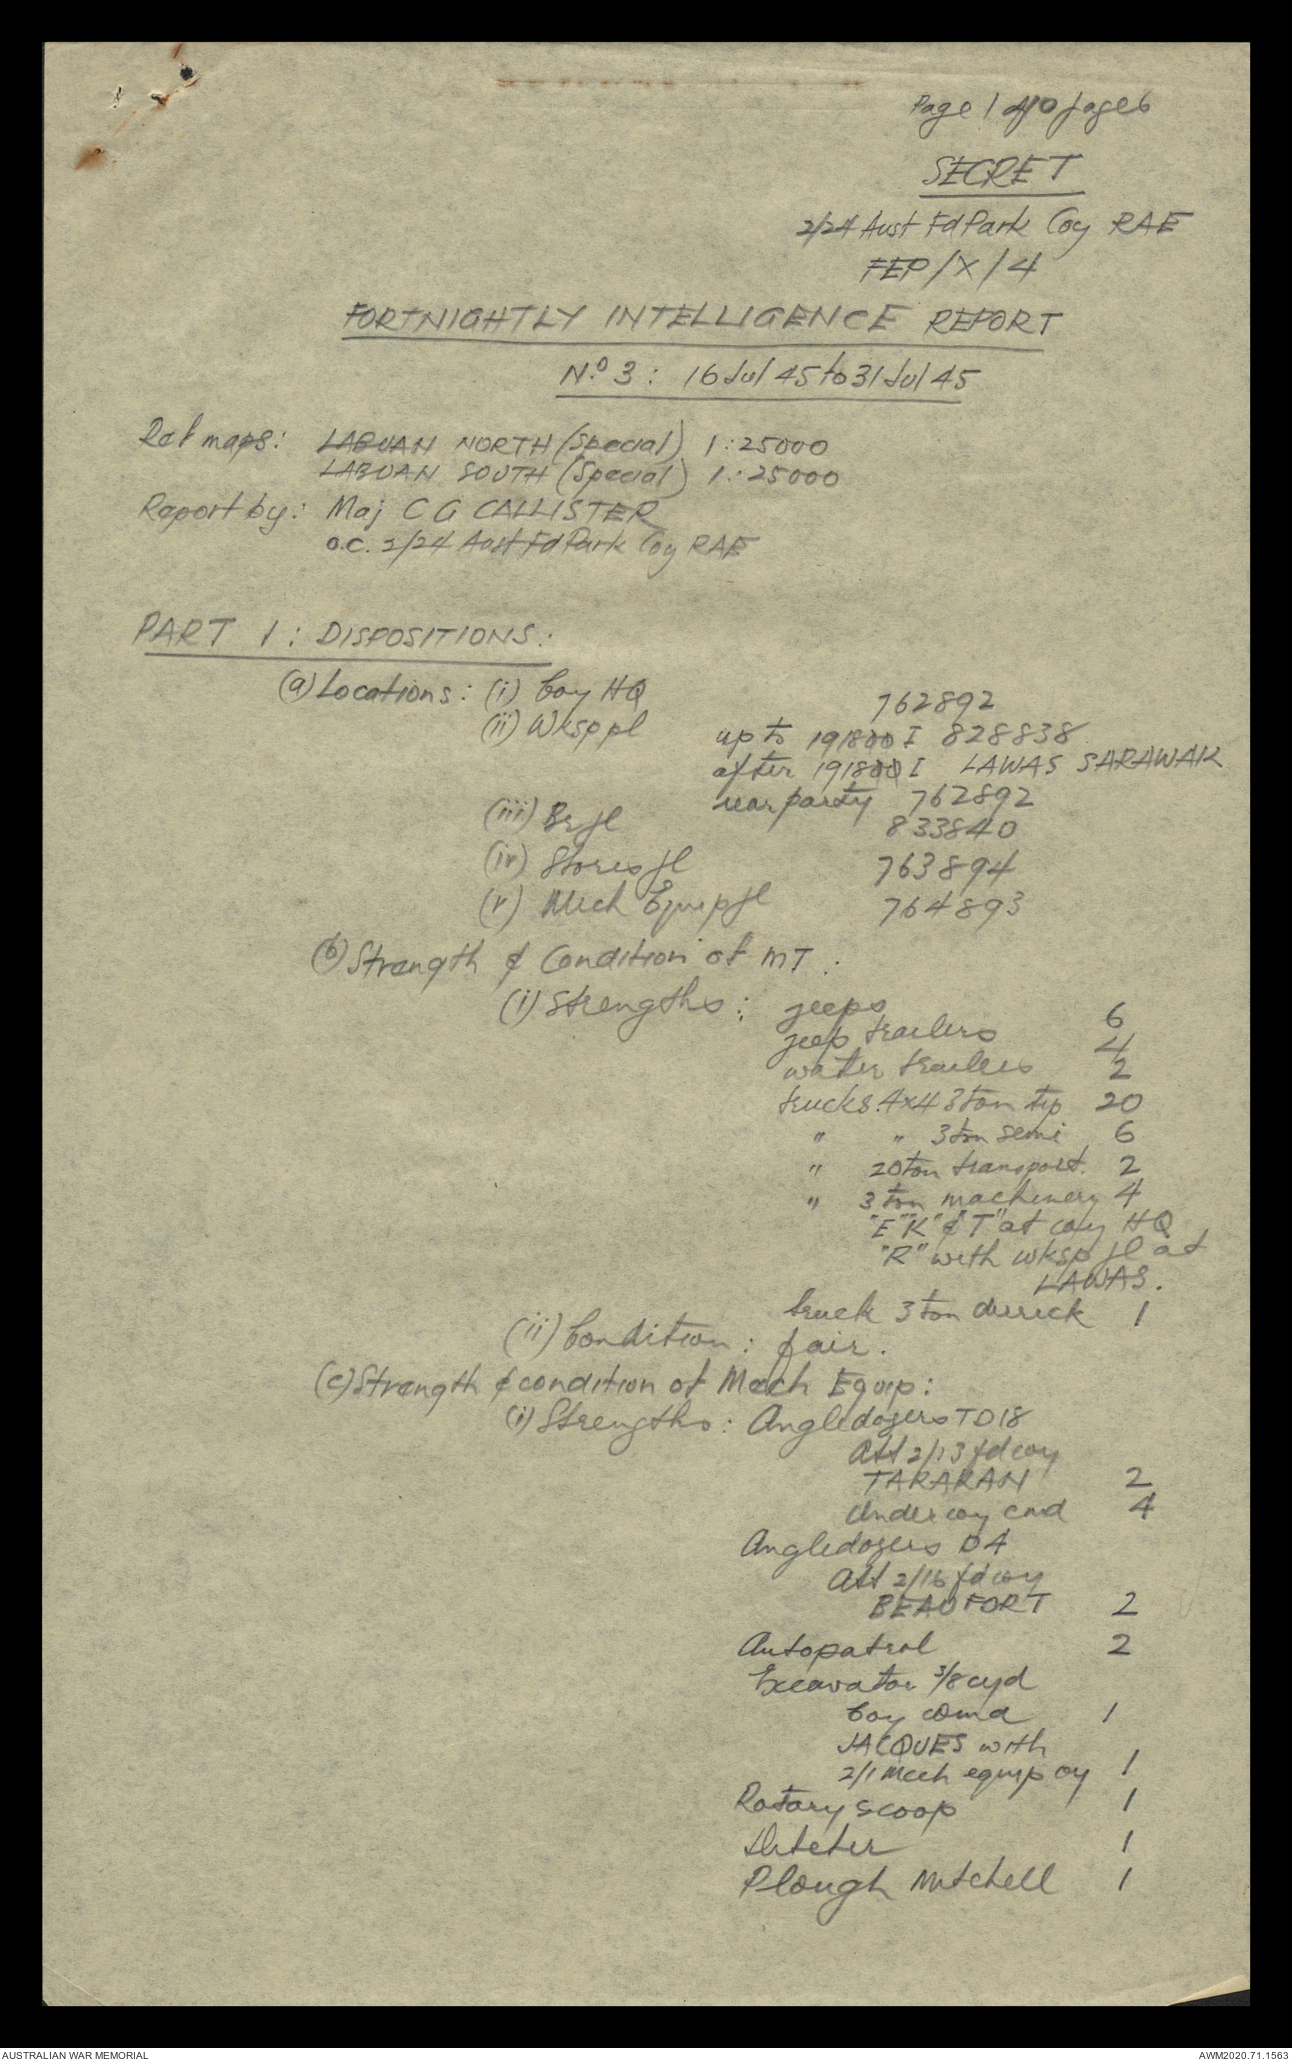 Page 1 of 10 pages
SECRET
2/24 Aust Fd Park Coy RAE
FEP/X/4
FORTNIGHTLY INTELLIGENCE REPORT
No. 3: 16 Jul 45 to 31 Jul 45
Ref maps: LABUAN NORTH (Special) 1:25000
LABUAN SOUTH (Special) 1:25000
Report by: Maj C G CALLISTER
O.C. 2/24 Aust Fd Park Coy RAE
PART 1: DISPOSITIONS:
(a) Locations: (i) Coy HQ 762892
(ii) Wksp pl up to 191800 I 828838
after 191800 I LAWAS SARAWAK
rear party 762892
(iii) Br pl 833840
(iv) Stores pl 763894
(v) Mech Equip pl 764893
(b) Strength & Condition of MT:
(i) Strengths: jeeps 6
jeep trailers 4
water trailers 2
trucks 4x4 3 ton tip 20
" " 3 ton semi 6
" 20 ton transport. 2
" 3 ton machinery 4
"E" "K" & "T" at coy HQ
"R" with wksp pl at
LAWAS.
truck 3 ton derrick 1
(ii) Condition: fair.
(c) Strength & condition of Mech Equip:
(i) Strengths: Angledozers TD18
Att 2/13 fd coy
TARAKAN 2
Under coy cmd 4
Angledozers D4
Att 2/16 fd coy
BEAUFORT 2
Autopatrol 2
Excavator 3/8 cyd
Coy comd 1
JACQUES with
2/1 Mech equip coy 1
Rotary scoop 1
Ditcher 1
Plough Mitchell 1
AUSTRALIAN WAR MEMORIAL
AWM2020.71.1563